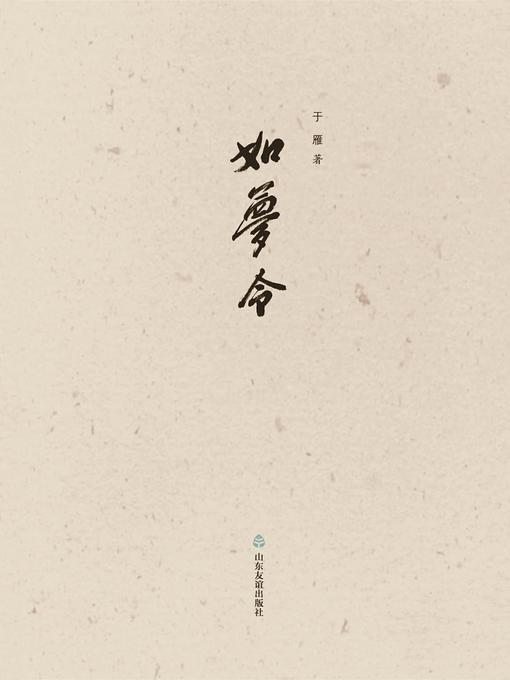 于雁 著
如夢令
山东友谊出版社